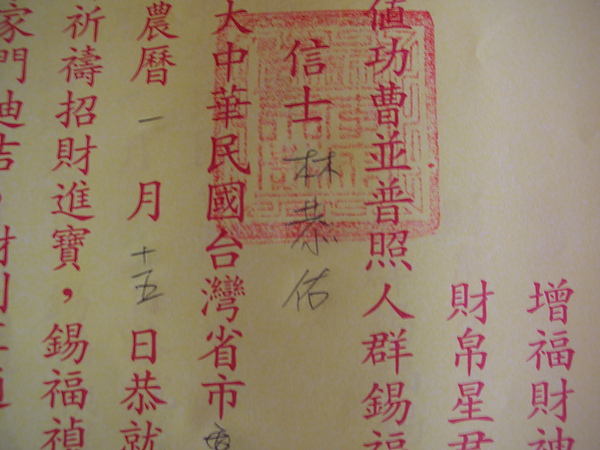 增福財神
財帛星君
值功曹並普照人群錫福
信士林恭佑
大中華民國台灣省市
農曆一月十五日恭就
祈禱招財進寶，錫福禎
家門迪吉，財利